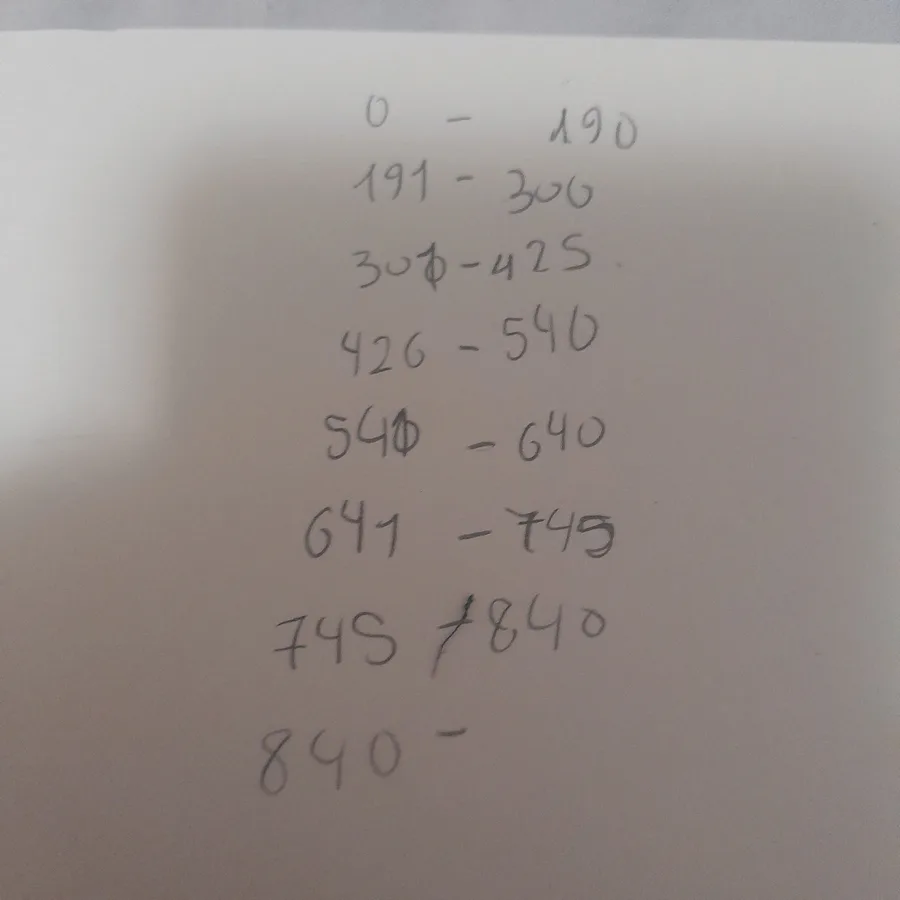 0 - 190
191 - 300
301 - 425
426 - 540
541 - 640
641 - 745
745 - 840
840 -